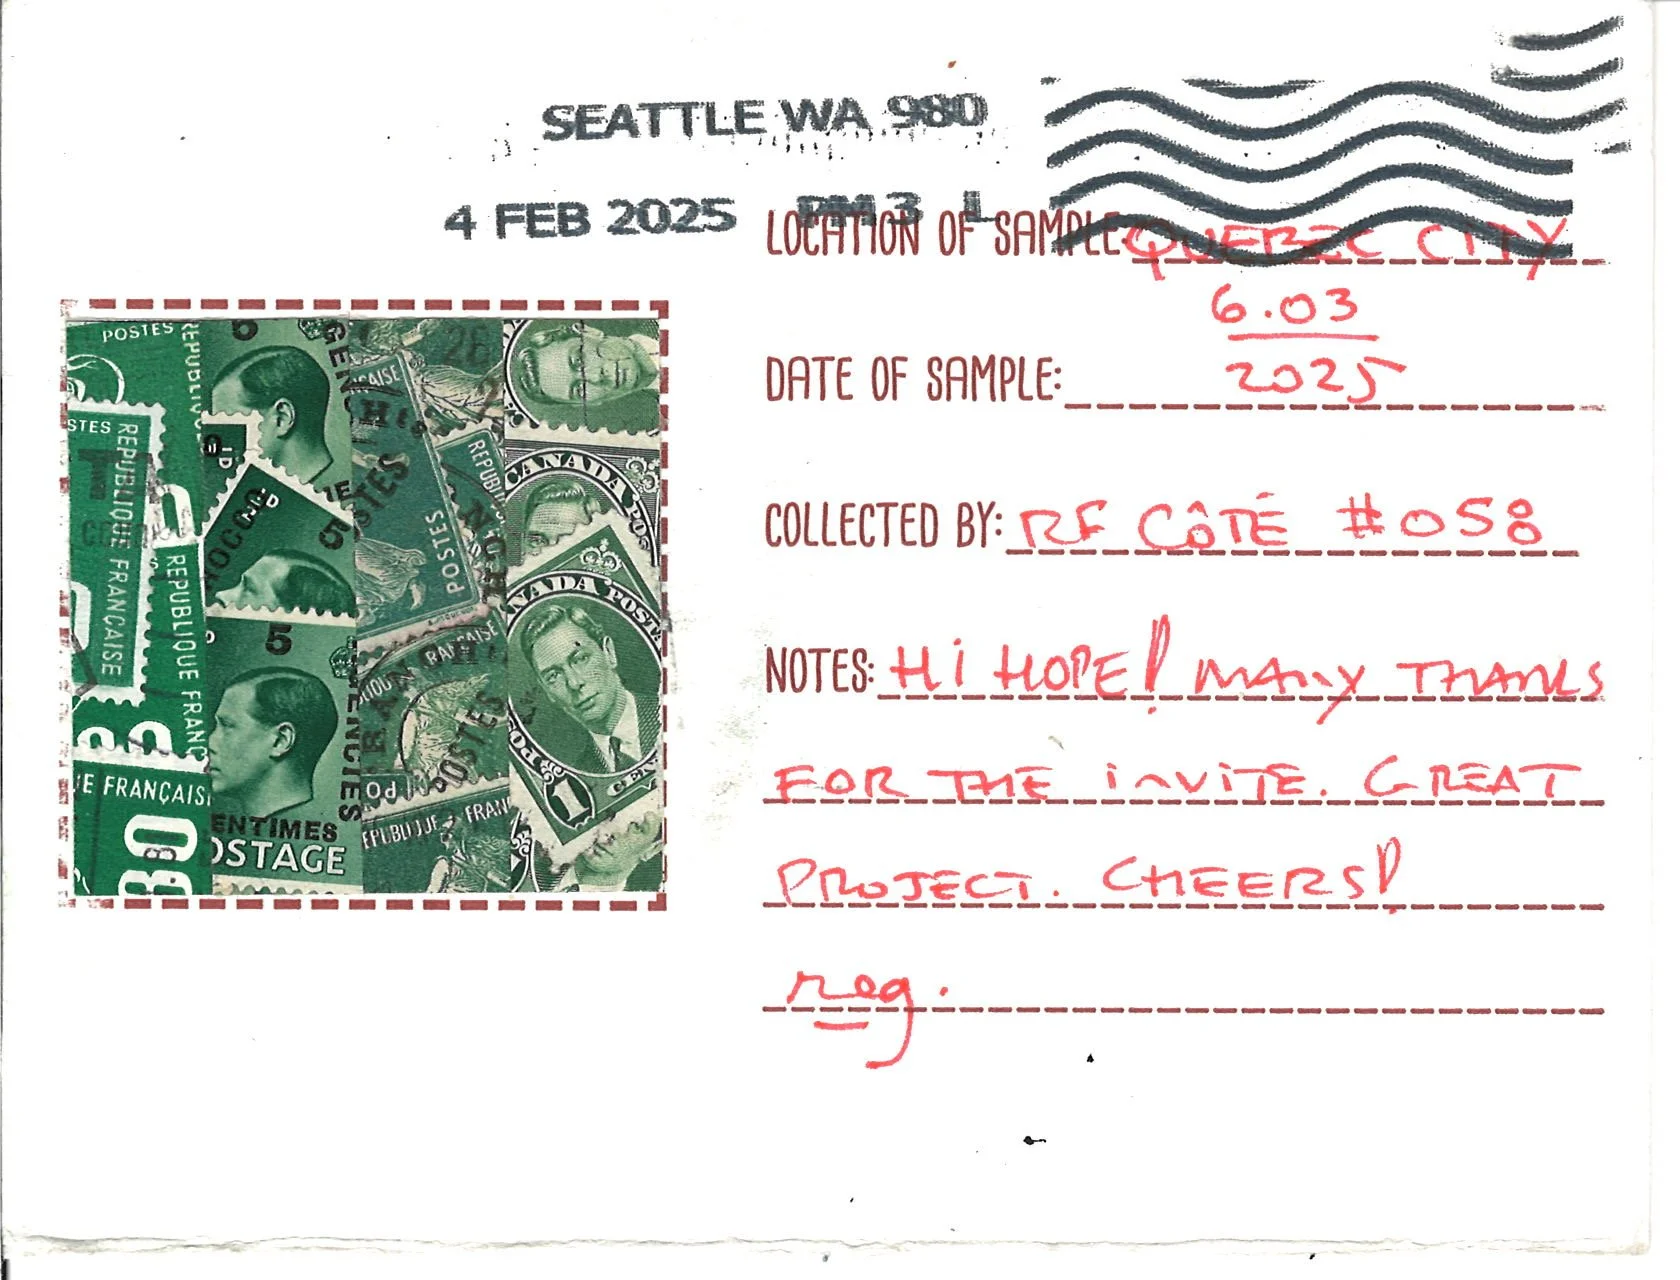 SEATTLE WA 980
4 FEB 2025 PM 3 L
LOCATION OF SAMPLE: QUEBEC CITY
6.03
DATE OF SAMPLE: 2025
COLLECTED BY: RF CÔTÉ #058
NOTES: Hi HOPE! MANY THANKS
FOR THE iNVITE. GREAT
PROJECT. CHEERS!
reg.
POSTES
STES
REPUBLIQUE FRANÇAISE
REPUBLIQUE FRANÇ
E FRANÇAIS
80
6
5
5
ENTIMES
OSTAGE
POSTES
POSTES
CANADA
CANADA POSTA
1